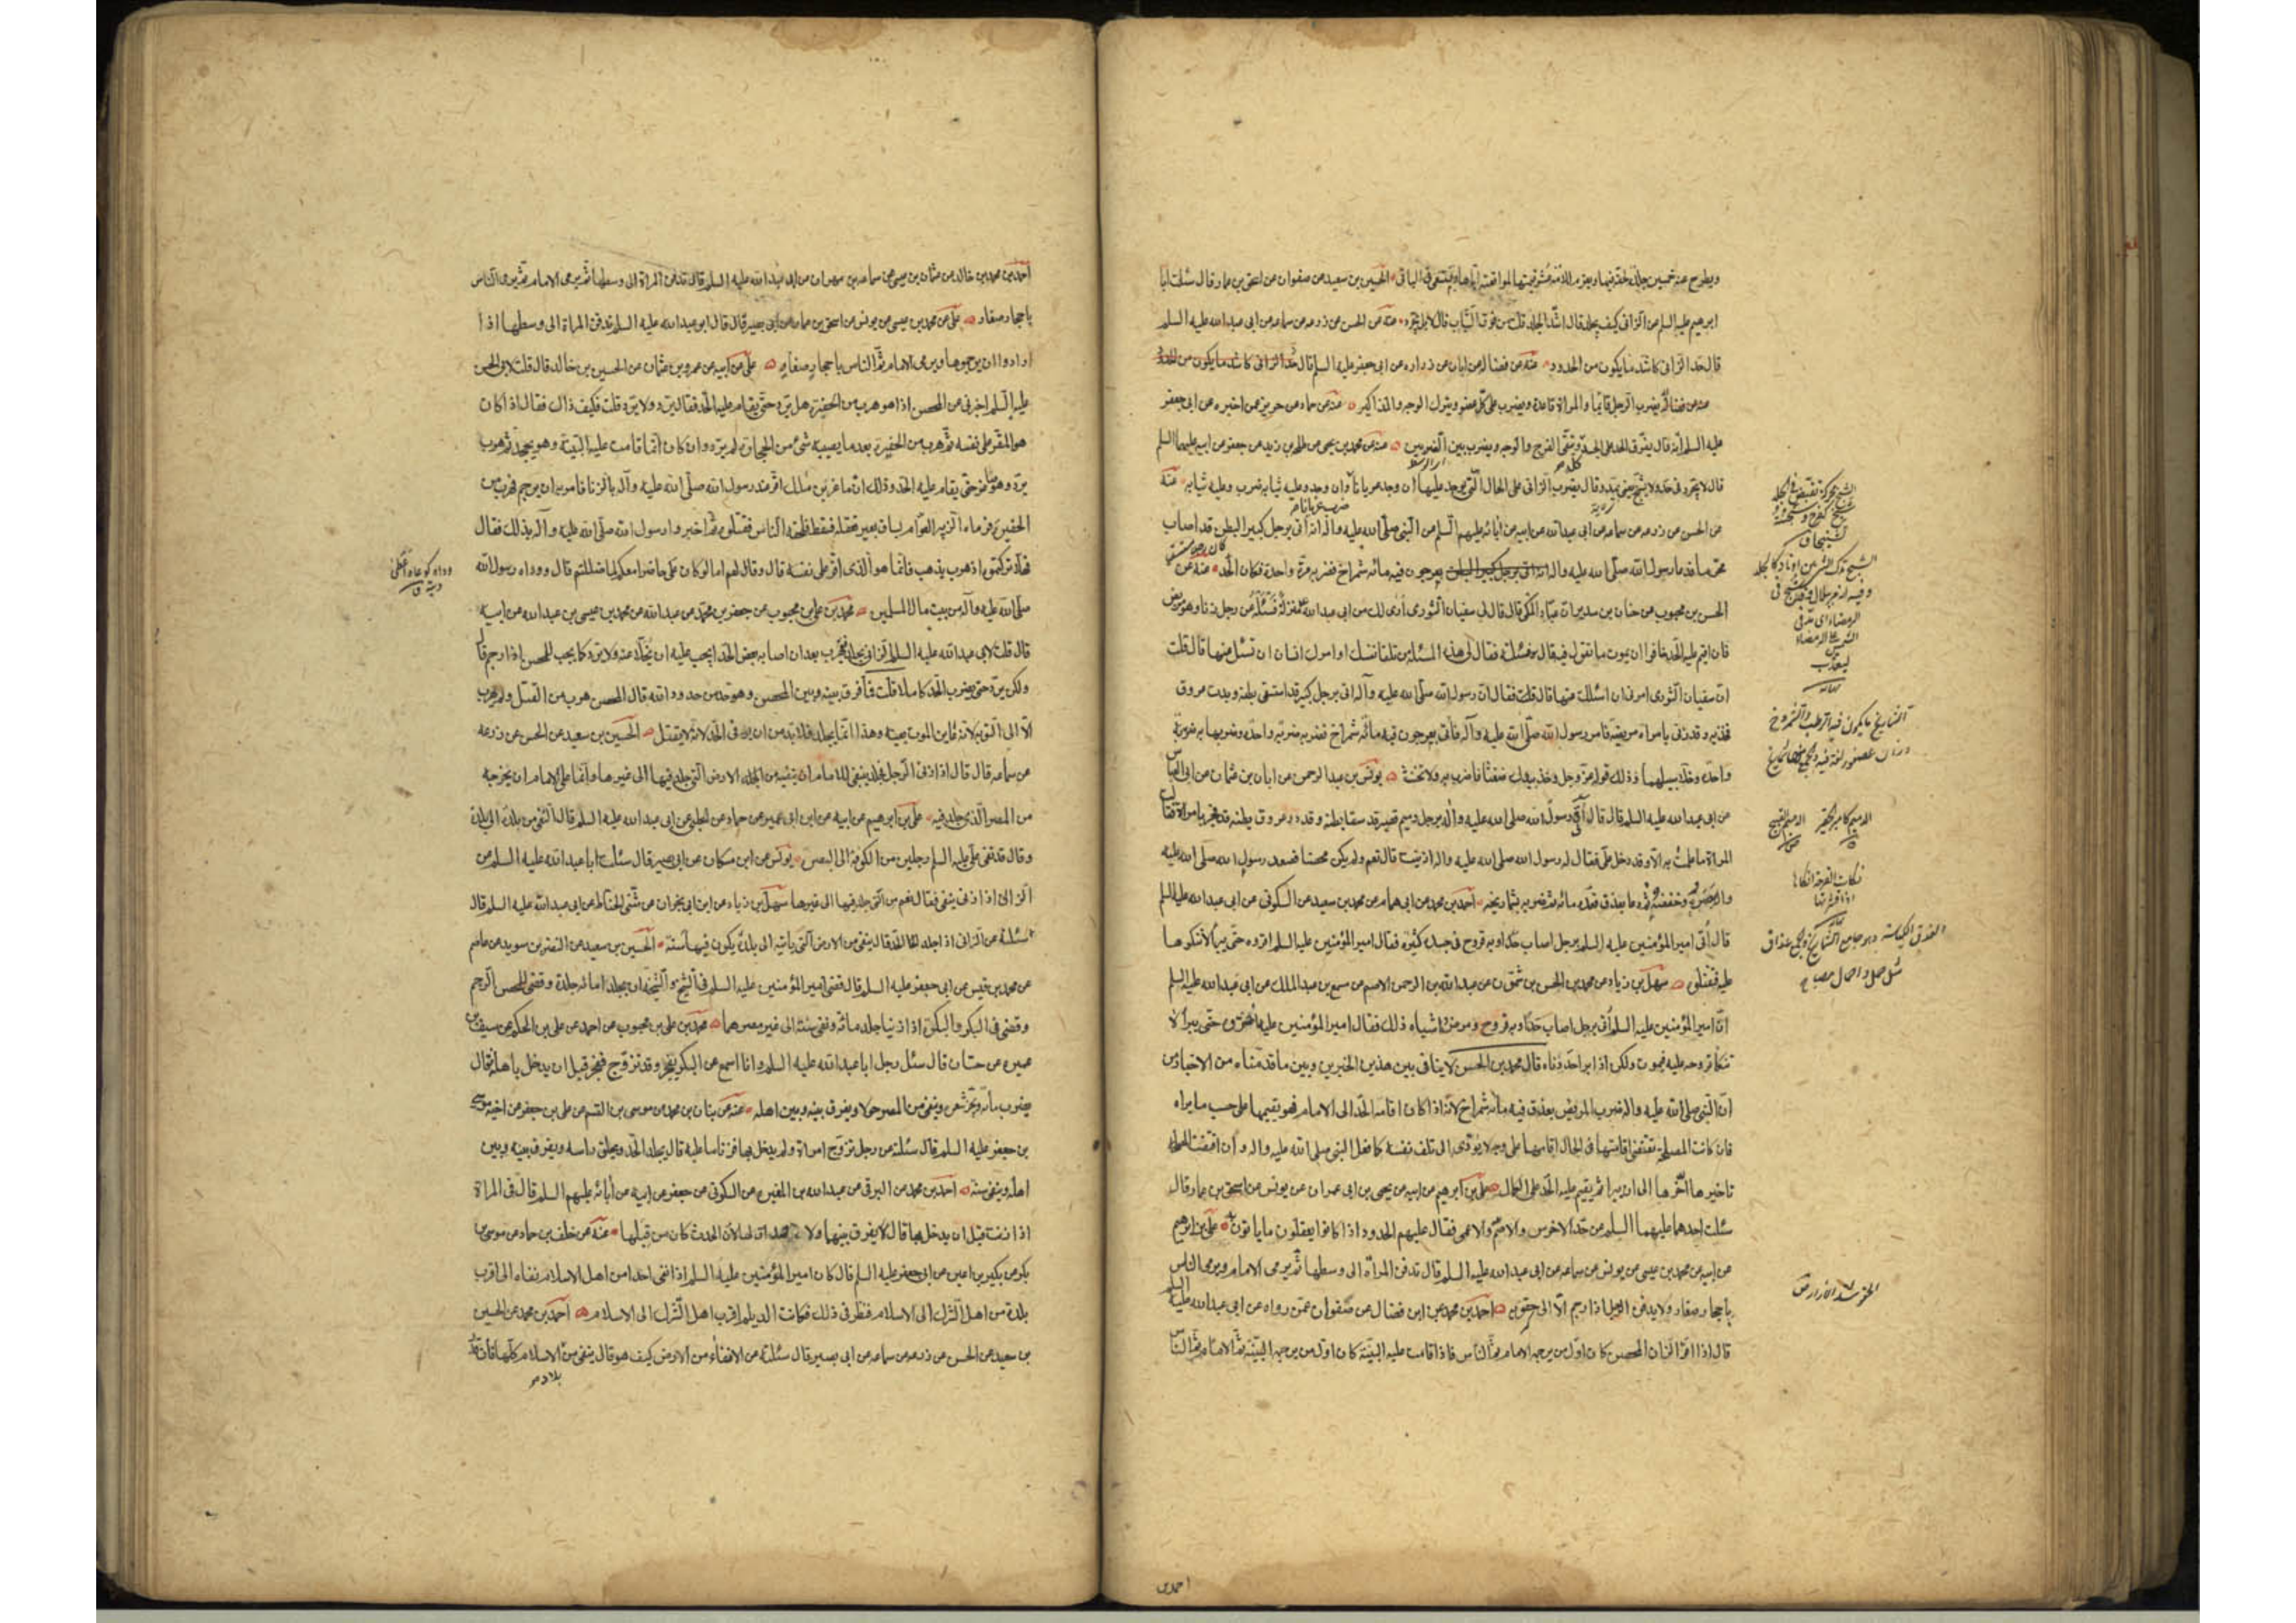 ويطرح عنه خمسين جلدة لحقه فيها ويعزر للأمة شرقيتها لمواقعته اياها ويبقى في الباقى الحسين بن سعيد عن صفوان عن اسحق بن عمار قال سئلت ابا
ابرهيم عليه السلم عن الزانى كيف يجلد قال اشد الجلد قلت من فوق الثياب قال لا بل يجرد عنه عن الحسن عن زرعه عن سماعه عن ابى عبد الله عليه السلم
قال حد الزانى كاشد ما يكون من الحدود عنه عن فضاله عن ابان عن زراره عن ابى جعفر عليه السلم قال
عنه عن فضاله يضرب الرجل قائما والمراة قاعدة ويضرب على كل عضو ويترك الوجه والمذاكير عنه عن حماد عن حريز عمن اخبره عن ابى جعفر
عليه السلم انه قال يفرق الحد على الجسد ويتقى الفرج والوجه ويضرب بين الضربين عنه عن محمد بن يحيى عن طلحه بن زيد عن جعفر عن ابيه عليهما السلم
قال لا يجرد فى حد ولا يشبح يعنى يمد وقال يضرب الزانى على الحال التى يوجد عليها ان وجد عريانا وان وجد وعليه ثيابه ضرب وعليه ثيابه عنه
عن الحسن عن زرعه عن سماعه عن ابى عبد الله عن ابيه عن ابائه عليهم السلم عن النبى صلى الله عليه واله انه اتى برجل كبير البطن قد اصاب
محرما فدعا رسول الله صلى الله عليه واله بعرجون فيه مائه شمراخ فضربه مرة واحدة فكان الحد عنه عن
الحسن بن محبوب عن حنان بن سدير عن عباد المكى قال قال لى سفيان الثورى ارى لك من ابى عبد الله منزلة فسئله عن رجل زنا وهو مريض
فان اقيم عليه الحد خافوا ان يموت ما تقول فيه قال فسئلته فقال لى هذه المسئله من تلقاء نفسك او امرك انسان ان تسئل عنها قال قلت
ان سفيان الثورى امرنى ان اسئلك عنها قال فقال ان رسول الله صلى الله عليه وآله اتى برجل كبير قد استسقى بطنه وبدت عروق
فخذيه وقد زنى بامراة مريضة فامر رسول الله صلى الله عليه وآله فاتى بعرجون فيه مائة شمراخ فضربه ضربة واحدة وضربها به ضربة
واحدة وخلا سبيلهما وذلك قوله عز وجل وخذ بيدك ضغثا فاضرب به ولا تحنث يونس بن عبد الرحمن عن ابان بن عثمان عن ابى العباس
عن ابى عبد الله عليه السلم قال اتى رسول الله صلى الله عليه وآله برجل دميم قصير قد سقا بطنه وقد در عروق بطنه قد فجر بامراة فقالت
المراة ما علمت به الا وقد دخل على فقال له رسول الله صلى الله عليه واله ازنيت قال نعم ولم يكن محصنا فصعد رسول الله صلى الله عليه
واله بصره وخفضه ثم دعا بعذق فعده مائه ثم ضربه بشماريخه احمد بن محمد عن ابى همام عن محمد بن سعيد عن السكونى عن ابى عبد الله عليه السلم
قال أتى امير المؤمنين عليه السلم برجل اصاب حدا وبه قروح فى جسده كثيرة فقال امير المؤمنين عليه السلم اقروه حتى يبرأ لا تنكوها
عليه فتقتلوه سهل بن زياد عن محمد بن الحسن بن شمون عن عبد الله بن عبد الرحمن الاصم عن مسمع بن عبد الملك عن ابى عبد الله عليه السلم
ان امير المؤمنين عليه السلم أتى برجل اصاب حدا وبه قروح ومرض واشباه ذلك فقال امير المؤمنين عليه السلم اخروه حتى يبرأ لا
تنكأ قروحه عليه فيموت ولكن اذا برأ حددناه قال محمد بن الحسن لا ينافى بين هذين الخبرين وبين ما قدمناه من الاخبار من
ان النبى صلى الله عليه واله ضرب المريض بعذق فيه مائه شمراخ لانه اذا كان اقامه الحد الى الامام فهو يقيمها على حسب ما يراه
فان كانت المصلحة تقتضى اقامتها فى الحال اقامها على وجه لا يؤدى الى تلف نفسه كما فعل النبى صلى الله عليه واله وان اقتضت المصلحه
تاخيرها اخرها الى ان يبرا ثم يقيم عليه الحد على الكمال على بن ابرهيم عن ابيه عن يحيى بن ابى عمران عن يونس عن اسحق بن عمار قال
سئلت احدهما عليهما السلم عن حد الاخرس والاصم والاعمى فقال عليهم الحدود اذا كانوا يعقلون ما ياتون على بن ابرهيم
عن ابيه عن محمد بن عيسى عن يونس عن سماعه عن ابى عبد الله عليه السلم قال تدفن المراة الى وسطها ثم يرمى الامام ويرمى الناس
باحجار صغار ولا يدفن الرجل اذا رجم الا الى حقويه احمد بن محمد عن ابن فضال عن صفوان عمن رواه عن ابى عبد الله عليه السلم
قال اذا اقر الزان المحصن كان اول من يرجمه الامام ثم الناس فاذا قامت عليه البينة كان اول من يرجمه البينة ثم الامام ثم الناس
احمد بن
احمد بن محمد بن خالد عن عثمان بن عيسى عن سماعه بن مهران عن ابى عبد الله عليه السلم قال تدفن المراة الى وسطها ثم يرمى الامام ثم يرمى الناس
باحجار صغار على عن محمد بن عيسى عن يونس عن اسحق بن عمار عن ابى بصير قال قال ابو عبد الله عليه السلم تدفن المراة الى وسطها اذا
ارادوا ان يرجموها ويرمى الامام ثم الناس باحجار صغار على عن ابيه عن عمرو بن عثمان عن الحسين بن خالد قال قلت لابى الحسن
عليه السلم اخبرنى عن المحصن اذا هو هرب من الحفيرة هل يرد حتى يقام عليه الحد فقال يرد ولا يرد قلت فكيف ذاك فقال اذا كان
هو المقر على نفسه ثم هرب من الحفيرة بعد ما يصيبه شئ من الحجارة لم يرد وان كان انما قامت عليه البينة وهو يجحد ثم هرب
يرد وهو صاغر حتى يقام عليه الحد وذلك ان ماعز بن ملك اقر عند رسول الله صلى الله عليه وآله بالزنا فامر به ان يرجم فهرب من
الحفيرة فرماه الزبير بن العوام بساق بعير فعقله فسقط فلحقه الناس فقتلوه ثم اخبروا رسول الله صلى الله عليه وآله بذلك فقال
فهلا تركتموه اذ هرب يذهب فانما هو الذى اقر على نفسه قال وقال لهم اما لو كان على حاضرا معكم لما ضللتم قال ووداه رسول الله
صلى الله عليه وآله من بيت مال المسلمين محمد بن على بن محبوب عن جعفر بن محمد عن عبد الله عن محمد بن عيسى بن عبد الله عن ابيه
قال قلت لابى عبد الله عليه السلم الزانى يجلد فيهرب بعد ان اصابه بعض الحد ايجب عليه ان يخلا عنه ولا يرد كما يجب للمحصن اذا رجم قال لا
ولكن يرد حتى يضرب الحد كاملا قلت فما فرق بينه وبين المحصن وهو حد من حدود الله قال المحصن هرب من القتل ولم يهرب
الا الى التوبه لانه عاين الموت بعينه وهذا انما يجلد فلا بد من ان يوفى الحد لانه لا يقتل الحسين بن سعيد عن الحسن عن زرعه
عن سماعه قال قال اذا زنى الرجل فجلد ينبغى للامام ان ينفيه من الارض التى جلد فيها الى غيرها وانما على الامام ان يخرجه
من المصر الذى جلد فيه على بن ابرهيم عن ابيه عن ابن ابى عمير عن حماد عن الحلبى عن ابى عبد الله عليه السلم قال النفى من بلدة الى بلدة
وقال قد نفى على عليه السلم رجلين من الكوفة الى البصره يونس عن ابن مسكان عن ابى بصير قال سئلت ابا عبد الله عليه السلم عن
الزانى اذا زنى ينفى فقال نعم من التى جلد فيها الى غيرها سهل بن زياد عن ابن ابى نجران عن مثنى الحناط عن ابى عبد الله عليه السلم قال
سئلته عن الزانى اذا جلد الحد قال ينفى من الارض التى ياتيه الى بلدة يكون فيها سنة الحسين بن سعيد عن النضر بن سويد عن عاصم
عن محمد بن قيس عن ابى جعفر عليه السلم قال قضى امير المؤمنين عليه السلم فى الشيخ والشيخة ان يجلدا مائه جلدة وقضى للمحصن الرجم
وقضى فى البكر والبكرة اذا زنيا جلد مائة ونفى سنة الى غير مصرهما محمد بن على بن محبوب عن احمد عن على بن الحكم عن سيف بن
عميره عن حنان قال سئل رجل ابا عبد الله عليه السلم وانا اسمع عن البكر يفجر وقد تزوج ففجر قبل ان يدخل باهله فقال
يضرب مأة ويجز شعره وينفى من المصر حولا ويفرق بينه وبين اهله عنه عن بنان بن محمد عن موسى بن القسم عن على بن جعفر عن اخيه موسى
بن جعفر عليه السلم قال سئلته عن رجل تزوج امراة ولم يدخل بها فزنا ما عليه قال يجلد الحد ويحلق راسه ويفرق بينه وبين
اهله وينفى سنة احمد بن محمد عن البرقى عن عبد الله بن المغيره عن السكونى عن جعفر عن ابيه عن أبائه عليهم السلم قال فى المراة
اذا زنت قبل ان يدخل بها قال لا يفرق بينهما ولا صداق لها لان الحدث كان من قبلها عنه عن خلف بن حماد عن موسى بن
بكر عن بكير بن اعين عن ابى جعفر عليه السلم قال كان امير المؤمنين عليه السلم اذا نفى احدا من اهل الاسلام نفاه الى اقرب
بلدة من اهل الشرك الى الاسلام فنظر فى ذلك فكانت الديلم اقرب اهل الشرك الى الاسلام احمد بن محمد عن الحسين
بن سعيد عن الحسن عن زرعه عن سماعه عن ابى بصير قال سئلته عن الانفاء من الارض كيف هو قال ينفى من الاسلام كلها فان
بلاد